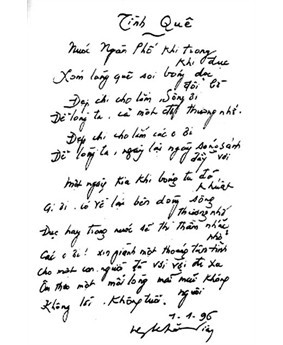 Tình Quê
Nước Ngàn Phố khi trong
khi đục
Xóm làng quê soi bóng dọc
đôi bờ
Đẹp chi cho lắm Sông ơi
Để lòng ta, cả một đời thương nhớ.
Đẹp chi cho lắm các o ơi
Để lòng ta, ngày lại ngày song sánh
đầy vơi
Một ngày kia khi bóng ta đã
khuất
Gì ơi. có về lại bến dòng sông
thương nhớ
Đục hay trong nước sẽ thì thầm nhắc
nhở
Các o ơi! xin giành một thoáng tâm tình
cho một con người đã vời vợi đi xa
Ôm theo một mối lòng mê mải không
nguôi
Không lời. Không tuổi.
1-1-96